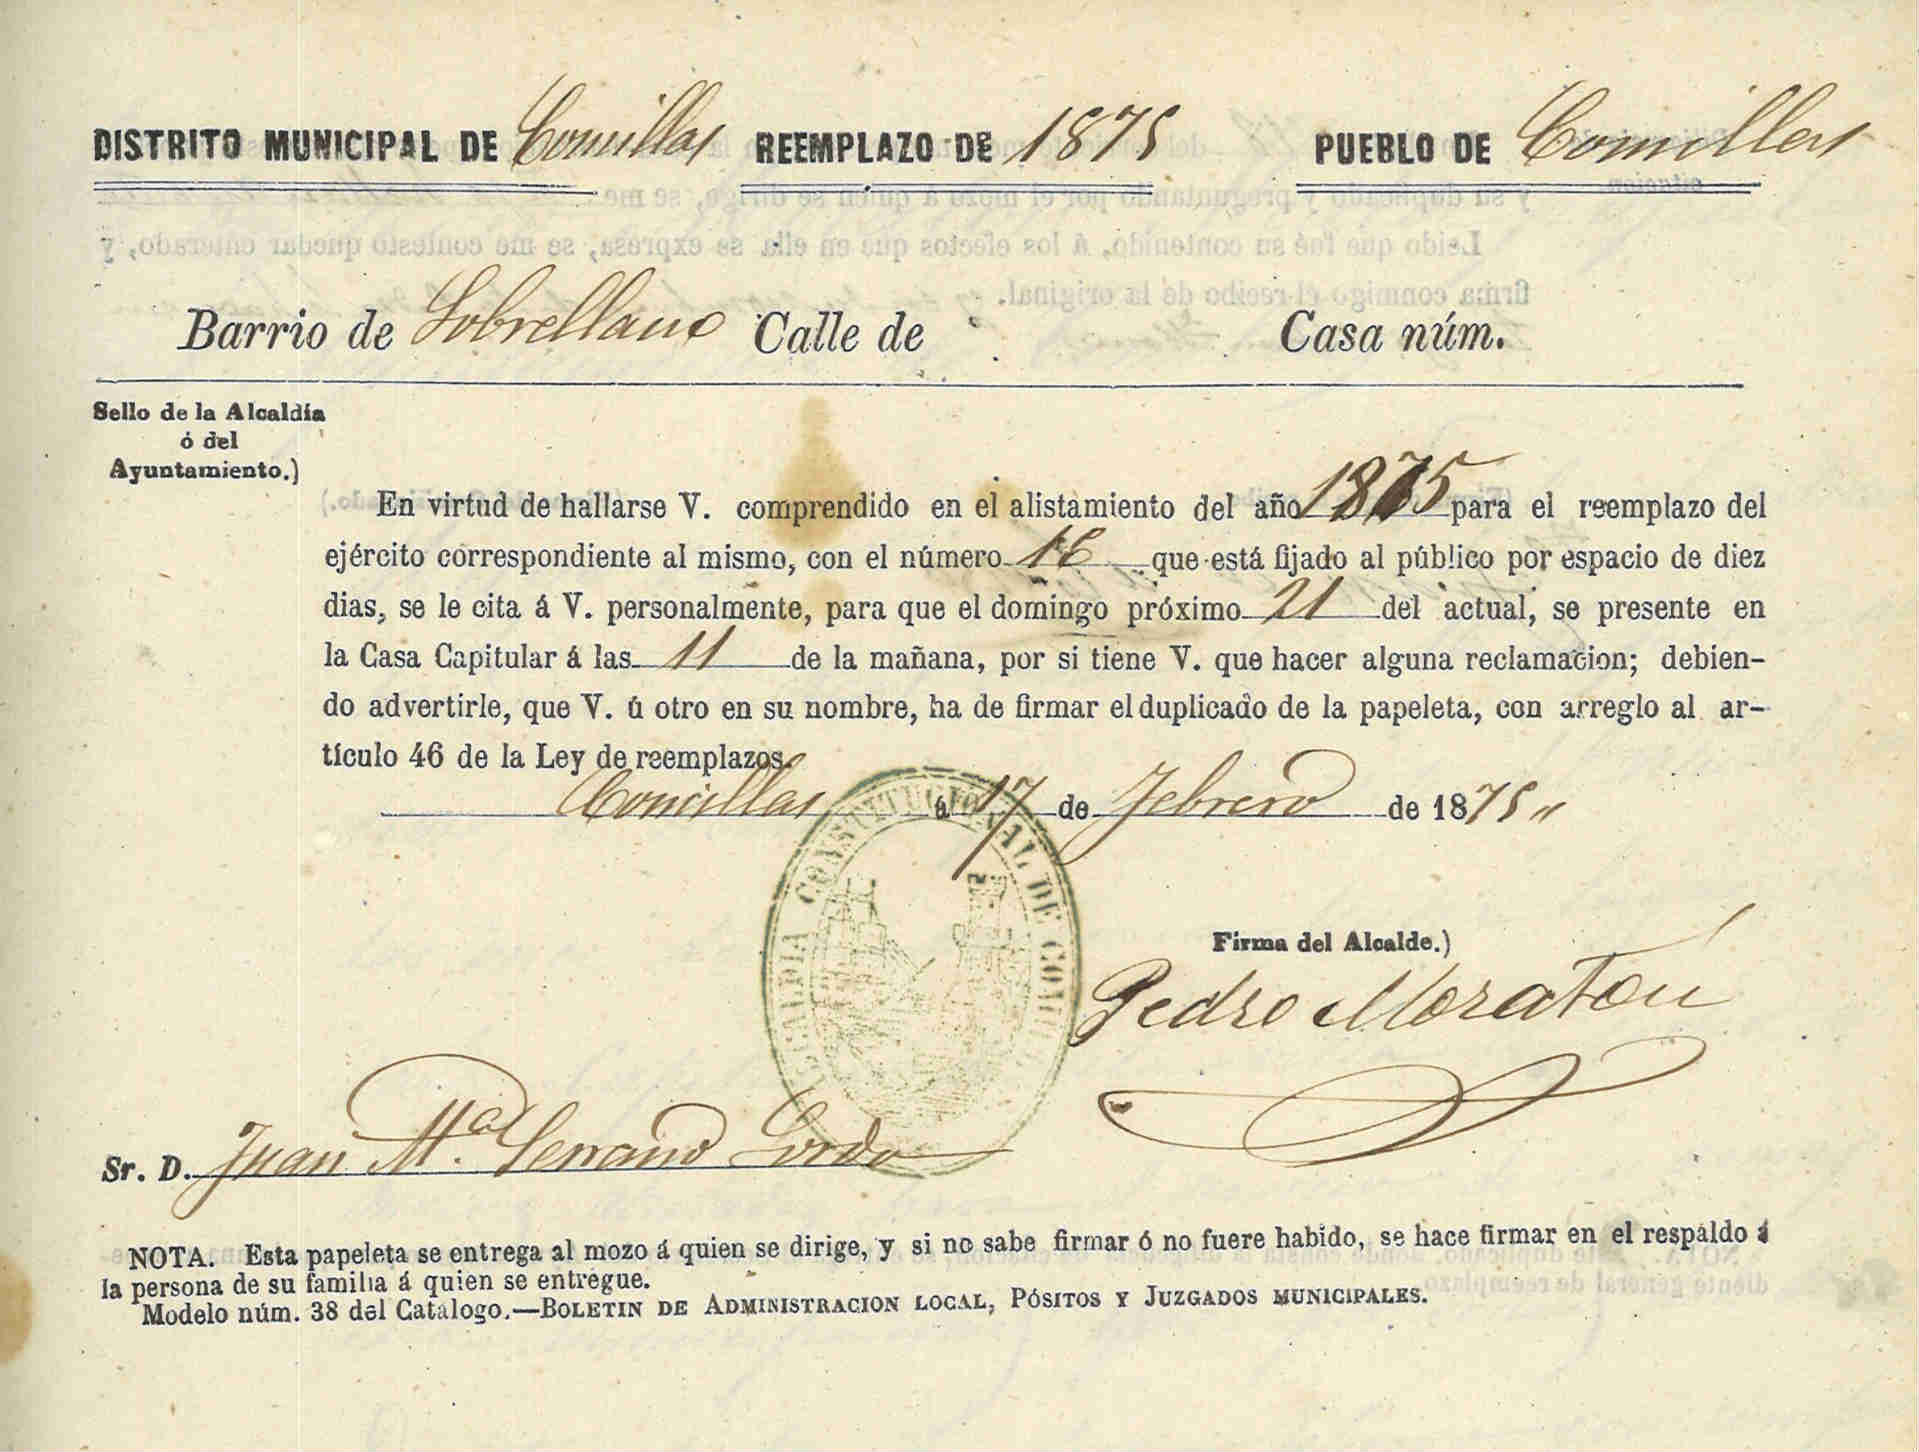 DISTRITO MUNICIPAL DE Comillas REEMPLAZO DE 1875 PUEBLO DE Comillas
Barrio de Sobrellano Calle de Casa núm.
Sello de la Alcaldía
ó del
Ayuntamiento.)
En virtud de hallarse V. comprendido en el alistamiento del año 1875 para el reemplazo del
ejército correspondiente al mismo, con el número 16 que está fijado al público por espacio de diez
dias, se le cita á V. personalmente, para que el domingo próximo 21 del actual, se presente en
la Casa Capitular á las 11 de la mañana, por si tiene V. que hacer alguna reclamacion; debien-
do advertirle, que V. ú otro en su nombre, ha de firmar el duplicado de la papeleta, con arreglo al ar-
tículo 46 de la Ley de reemplazos.
Comillas á 17 de Febrero de 1875
ALCALDIA CONSTITUCIONAL DE
Firma del Alcalde.)
Pedro Moratón
Sr. D. Juan Mª. Serrano Gordo
NOTA. Esta papeleta se entrega al mozo á quien se dirige, y si no sabe firmar ó no fuere habido, se hace firmar en el respaldo á
la persona de su familia á quien se entregue.
Modelo núm. 38 del Catalogo.—BOLETIN DE ADMINISTRACION LOCAL, PÓSITOS Y JUZGADOS MUNICIPALES.